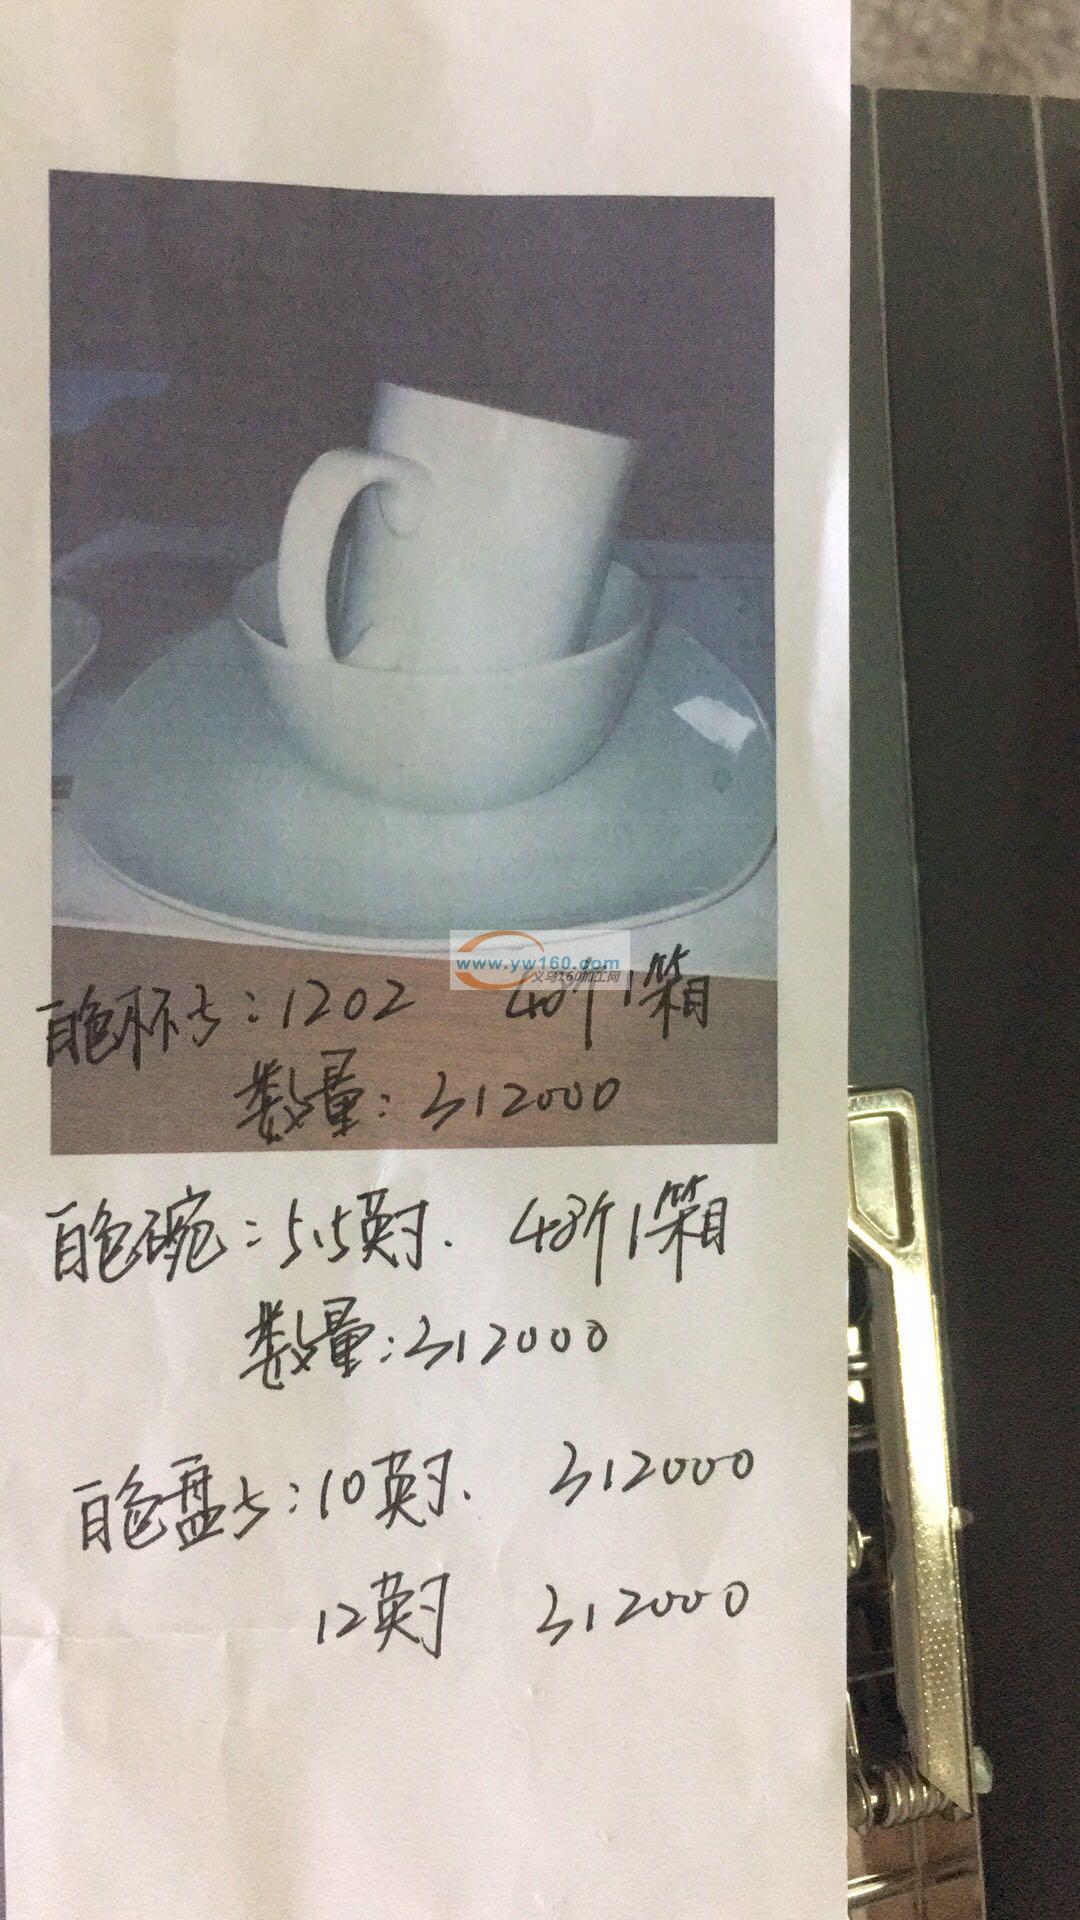 www.yw160.com
义乌160加工网
白色杯子:1202 48个1箱
数量:312000
白色碗:5.5英寸. 48个1箱
数量:312000
白色盘子:10英寸. 312000
12英寸 312000